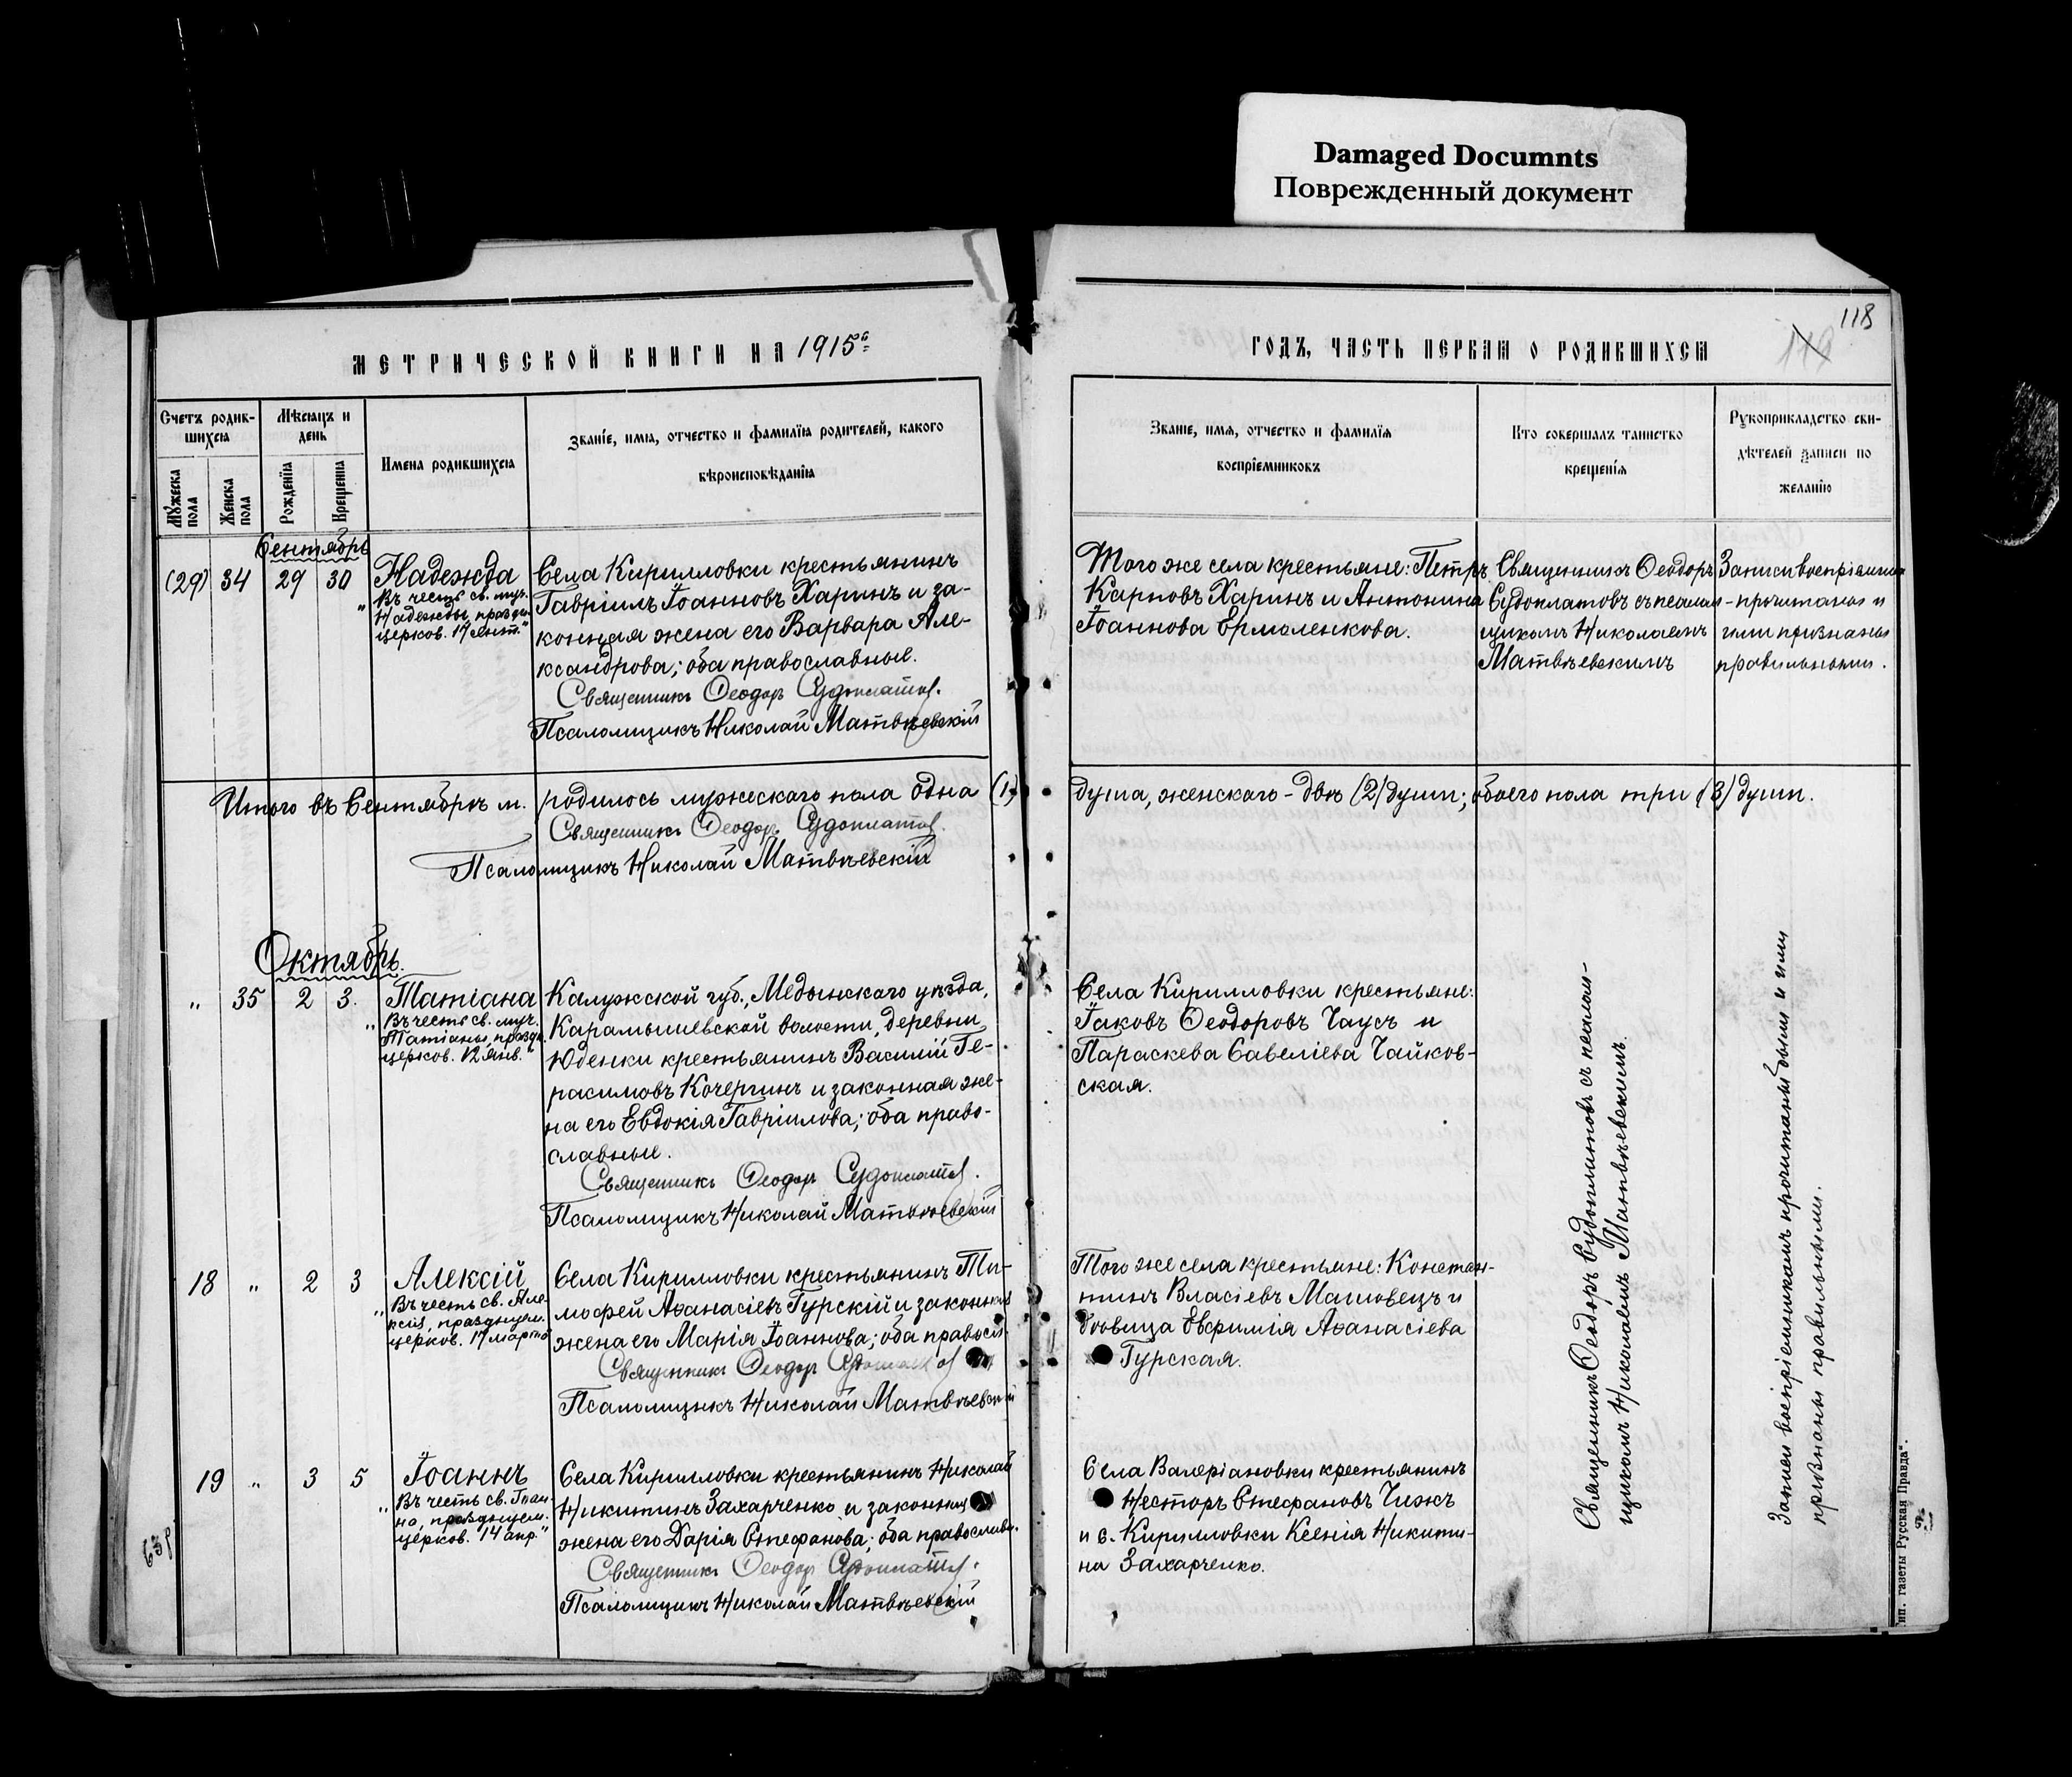 Damaged Documnts
Поврежденный документ
118
МЕТРИЧЕСКОЙ КНИГИ НА 1915 г.
ГОДЪ, ЧАСТЬ ПЕРВАЯ О РОДИВШИХСЯ
Счетъ родив-
шихся
Мужеска пола
Женска пола
Мѣсяцъ и
день
Рожденія
Крещенія
Имена родившихся
Званіе, имя, отчество и фамилія родителей, какого
вѣроисповѣданія
Званіе, имя, отчество и фамилія
воспріемниковъ
Кто совершалъ таинство
крещенія
Рукоприкладство сви-
дѣтелей записи по
желанію
Сентябрь
(29) 34 29 30
Надежда
"Въ честь св. муч.
Надежды, праздн.
церков. 17 сент."
Села Кирилловки крестьянинъ
Гавріилъ Іоанновъ Харинъ и за-
конная жена его Варвара Але-
ксандрова; оба православные.
Священникъ Ѳеодоръ Судоплатов.
Псаломщикъ Николай Матвѣевскій
Того же села крестьяне: Петръ
Карповъ Харинъ и Антонина
Іоаннова Ермоленкова.
Священникъ Ѳеодоръ
Судоплатовъ съ псалом-
щикомъ Николаемъ
Матвѣевскимъ
Записи воспріемни
- прочитаны и
ими признаны
правильными.
Итого въ Сентябрѣ м. родилось мужескаго пола одна (1)
душа, женскаго - двѣ (2) души; обоего пола три (3) души.
Священникъ Ѳеодоръ Судоплатов.
Псаломщикъ Николай Матвѣевскій
Октябрь.
" 35 2 3.
Татіана
"Въ честь св. муч.
Татіаны, праздн.
церков. 12 янв."
Калужской губ., Медынскаго уѣзда,
Карамышевской волости, деревни
Юденки крестьянинъ Василій Ге-
расимовъ Кочергинъ и законная же-
на его Евдокія Гавріилова; оба право-
славные.
Священникъ Ѳеодоръ Судоплатов.
Псаломщикъ Николай Матвѣевскій
Села Кирилловки крестьяне:
Іаковъ Ѳеодоровъ Чаусъ и
Параскева Савеліева Чайков-
ская.
18 " 2 3
Алексій
"Въ честь св. Але-
ксія, празднуем.
церков. 17 марта"
Села Кирилловки крестьянинъ Ти-
моѳей Аѳанасіевъ Гурскій и законная
жена его Марія Іоаннова; оба правосл.
Священникъ Ѳеодоръ Судоплатов
Псаломщикъ Николай Матвѣевскій
Того же села крестьяне: Констан-
тинъ Власіевъ Машовецъ и
вдовица Евфимія Аѳанасіева
Гурская.
19 " 3 5
Іоаннъ
"Въ честь св. Іоан-
на, празднуем.
церков. 14 апр."
Села Кирилловки крестьянинъ Николай
Никитинъ Захарченко и законная
жена его Дарія Стефанова; оба православн.
Священникъ Ѳеодоръ Судоплатов.
Псаломщикъ Николай Матвѣевскій
Села Валеріановки крестьянинъ
Несторъ Стефановъ Чижъ
и с. Кирилловки Ксенія Никити-
на Захарченко.
Священникъ Ѳеодоръ Судоплатовъ съ псалом-
щикомъ Николаемъ Матвѣевскимъ.
Записи воспріемникамъ прочитаны были и ими
признаны правильными.
тип. газеты „Русская Правда".